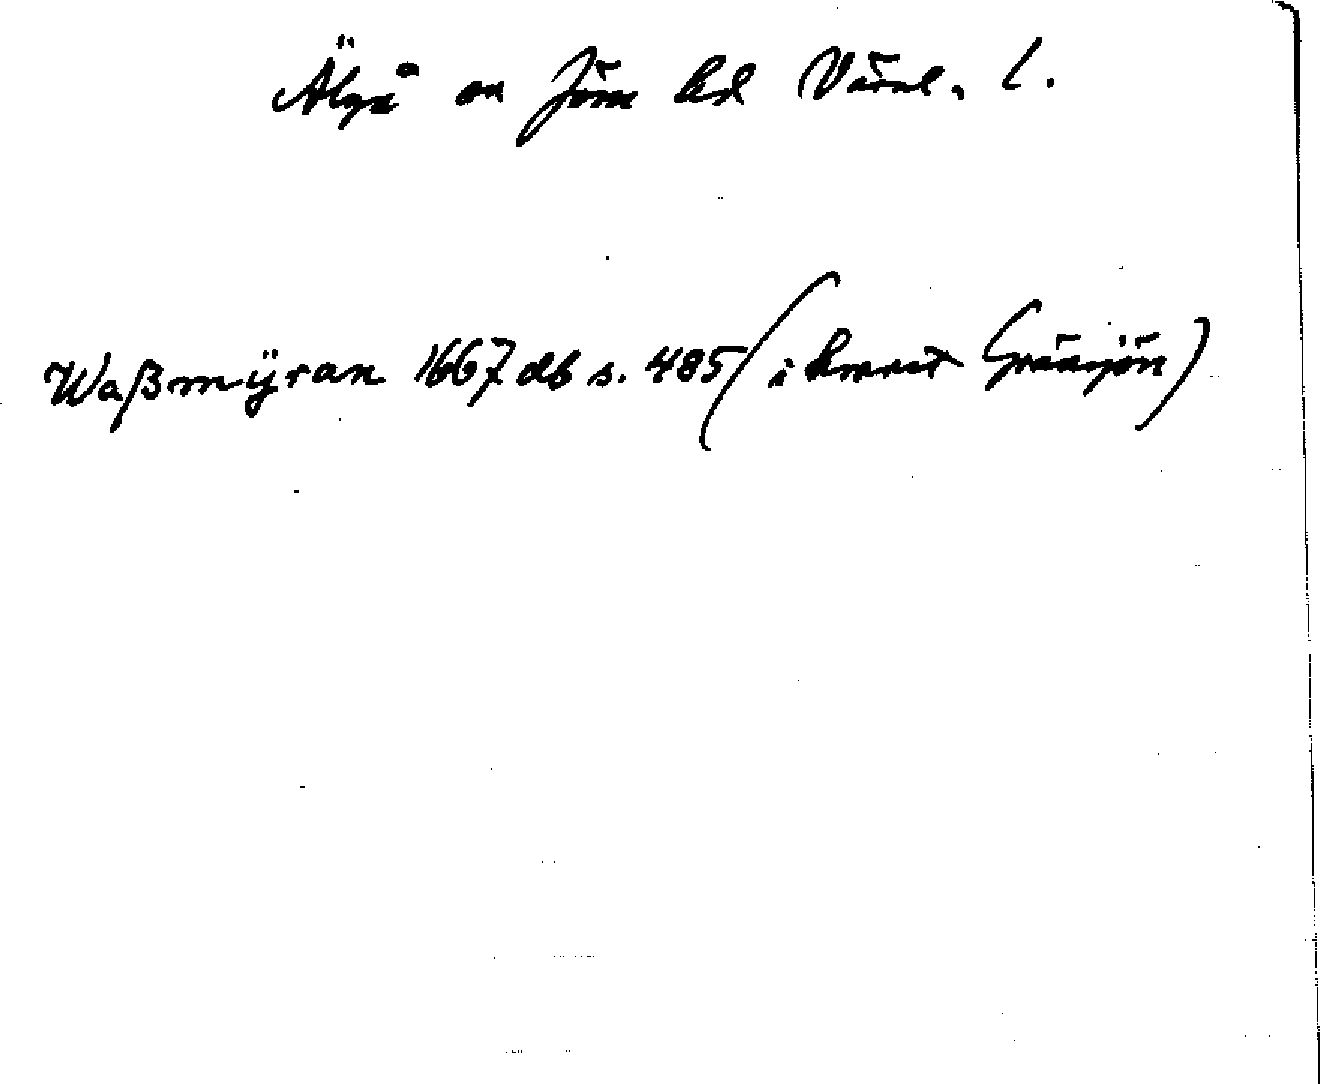 Älgå sn Jösse hd Värml. l.
Waßmÿran 1667 db s. 485 (i hmnt Gränsjön)